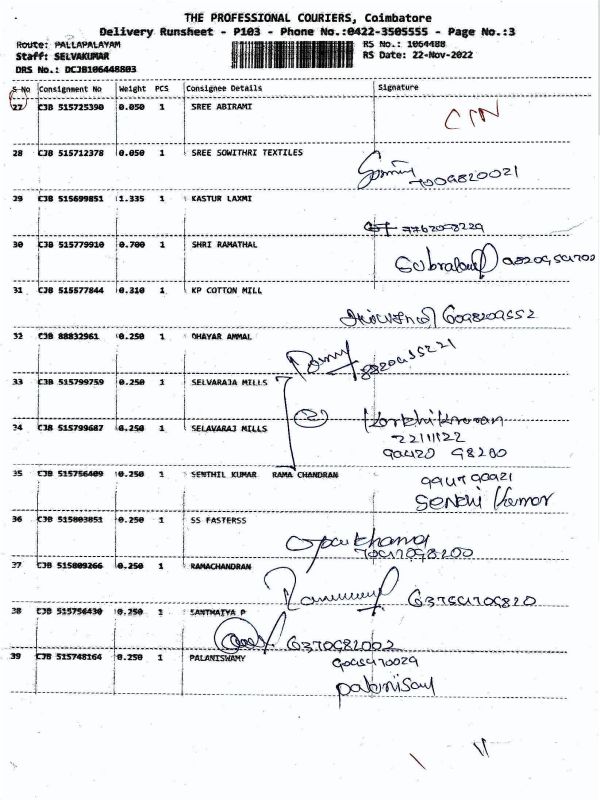 THE PROFESSIONAL COURIERS, Coimbatore
Delivery Runsheet - P103 - Phone No.:0422-3505555 - Page No.:3
Route: PALLAPALAYAM RS No.: 1064488
Staff: SELVAKUMAR RS Date: 22-Nov-2022
DRS No.: DCJB106448803
S No Consignment No Weight PCS Consignee Details Signature
27 CJB 515725390 0.050 1 SREE ABIRAMI
28 CJB 515712378 0.050 1 SREE SOWITHRI TEXTILES
7009820021
29 CJB 515699851 1.335 1 KASTUR LAXMI
30 CJB 515779910 0.700 1 SHRI RAMATHAL
31 CJB 515577844 0.310 1 KP COTTON MILL
32 CJB 88832961 0.250 1 DHAYAR AMMAL
33 CJB 515799759 0.250 1 SELVARAJA MILLS
2
34 CJB 515799687 0.250 1 SELAVARAJ MILLS
22/11/22
90420 98200
35 CJB 515756409 0.250 1 SENTHIL KUMAR RAMA CHANDRAN
Senthi Kumar
36 CJB 515803851 0.250 1 SS FASTERSS
37 CJB 515809266 0.250 1 RAMACHANDRAN
38 CJB 515756430 0.250 1 SANTHAIYA P
6370982002
39 CJB 515748164 0.250 1 PALANISWAMY